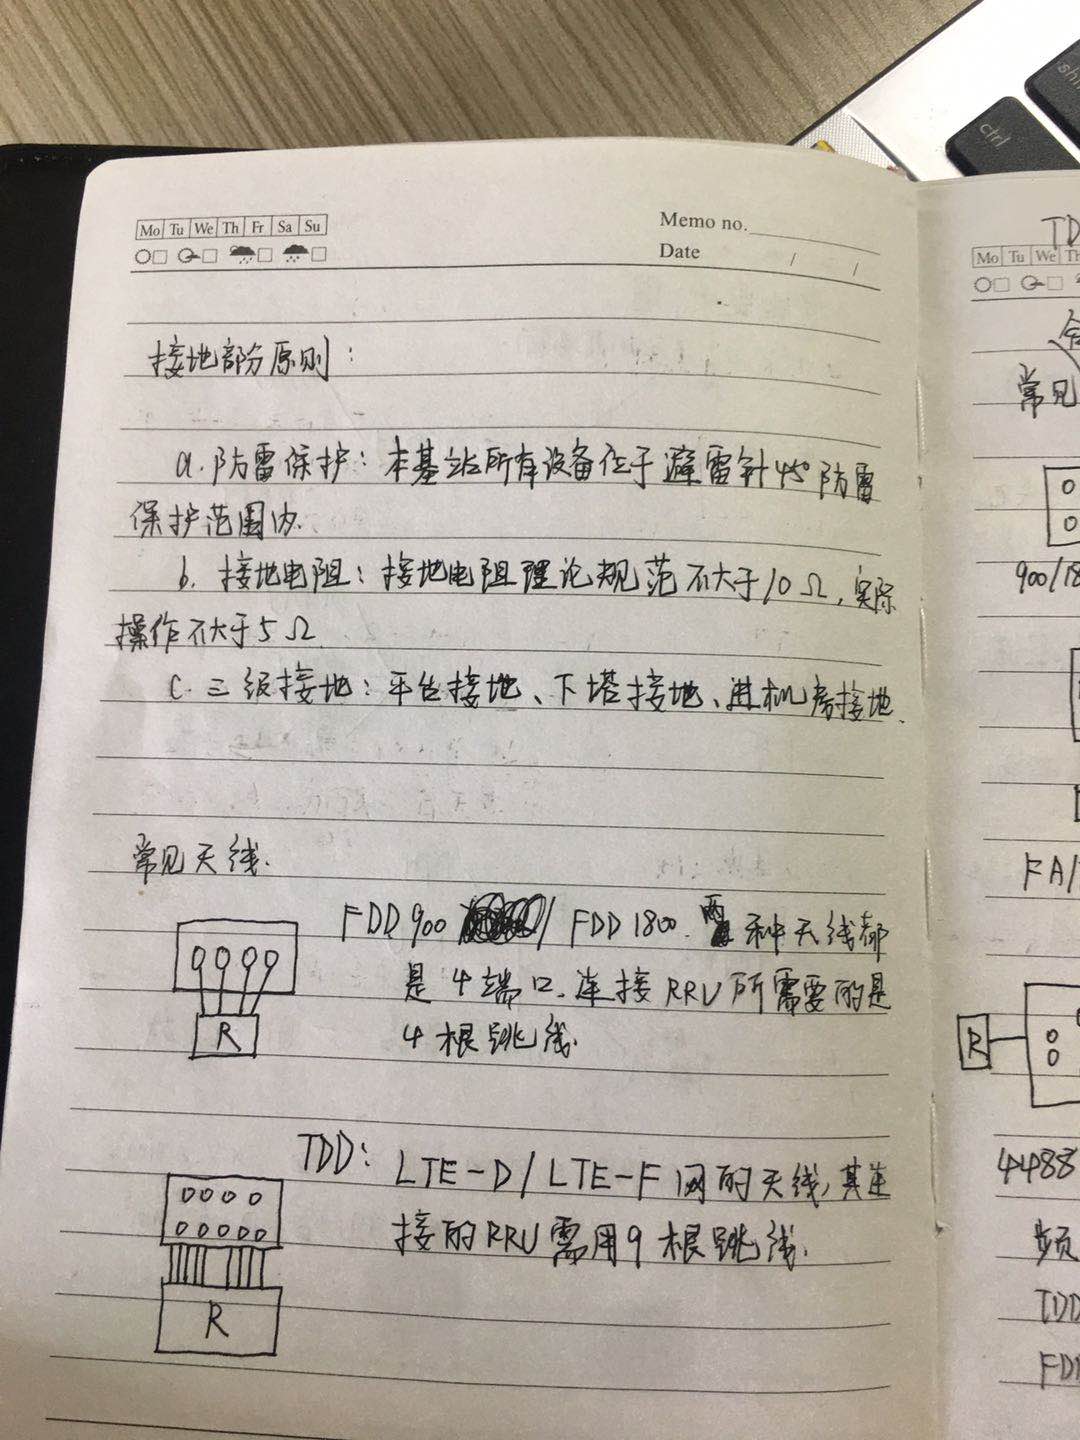 shi
ctrl
Mo Tu We Th Fr Sa Su
Memo no.
Date / /
接地部分原则:
a. 防雷保护: 本基站所有设备位于避雷针45°防雷
保护范围内.
b. 接地电阻: 接地电阻理论规范不大于10Ω, 实际
操作不大于5Ω
c. 三级接地: 平台接地、下塔接地、进机房接地.
常见天线.
FDD 900 / FDD 1800. 两种天线都
是4端口. 连接RRU所需要的是
4根跳线.
R
TDD: LTE-D / LTE-F 网的天线, 其连
接的RRU需用9根跳线.
R
TD
Mo Tu We Th
常见
900/18
FA/
R
4488
频
TDD
FD